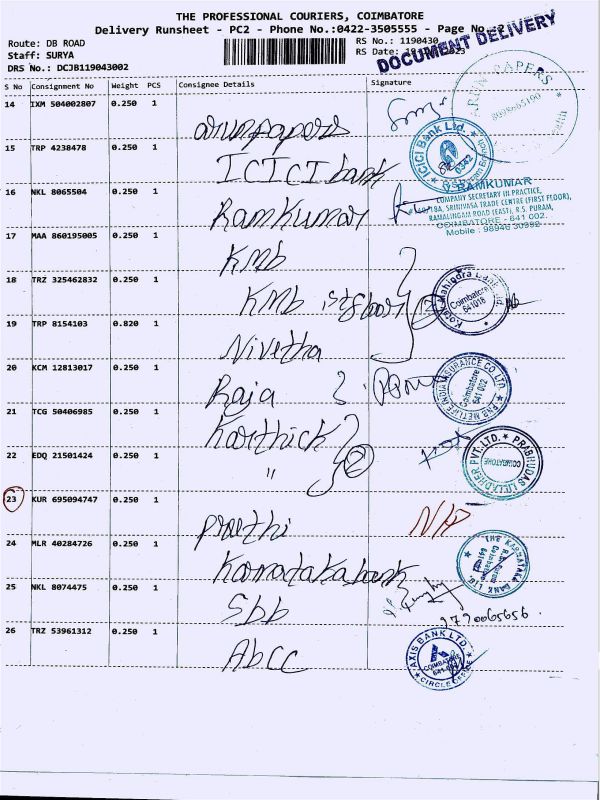 THE PROFESSIONAL COURIERS, COIMBATORE
Delivery Runsheet - PC2 - Phone No.:0422-3505555 - Page No.:2
Route: DB ROAD
Staff: SURYA
DRS No.: DCJB119043002
RS No.: 1190430
RS Date:
DOCUMENT DELIVERY
S No Consignment No Weight PCS Consignee Details Signature
14 IXM 504002807 0.250 1 arunpapers
15 TRP 4238478 0.250 1 ICICI bank
ICICI Bank Ltd.
16 NKL 8065504 0.250 1 Ramkumar
RAMKUMAR
COMPANY SECRETARY IN PRACTICE,
SRINIVASA TRADE CENTRE (FIRST FLOOR),
RAMALINGAM ROAD (EAST), R.S. PURAM,
COIMBATORE - 641 002.
Mobile : 98946 30992
17 MAA 860195005 0.250 1 KMb
18 TRZ 325462832 0.250 1 KMb
Kotak Mahindra Bank Ltd.
Coimbatore
641018
19 TRP 8154103 0.820 1 Nivetha
20 KCM 12813017 0.250 1 Raja
PNB METLIFE INDIA INSURANCE CO. LTD.
Coimbatore
641 002
21 TCG 50406985 0.250 1 Karthick
2
22 EDQ 21501424 0.250 1 "
PRABHUDAS LILLADHER PVT. LTD.
COIMBATORE
23 KUR 695094747 0.250 1 preethi
N/P
24 MLR 40284726 0.250 1 Karnatakabank
THE KARNATAKA BANK LTD.
25 NKL 8074475 0.250 1 Sbb
9790065656.
26 TRZ 53961312 0.250 1 Abcc
AXIS BANK LTD.
COIMBATORE
CIRCLE OFFICE